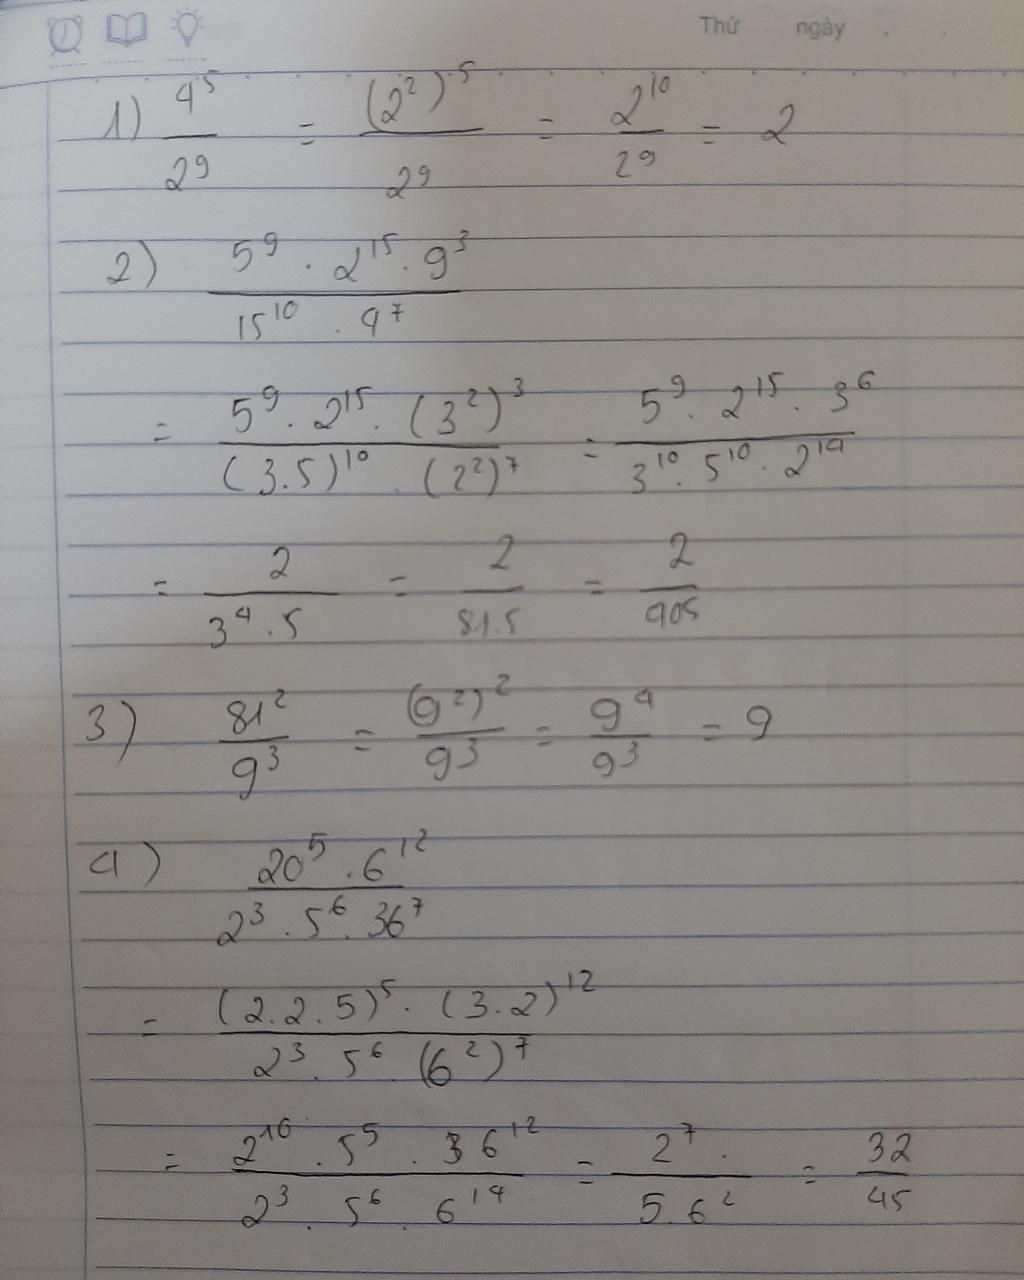 Thứ ngày . .
1) 4⁵/2⁹ = (2²)⁵/2⁹ = 2¹⁰/2⁹ = 2
2) 5⁹ . 2¹⁵ . 9³ / 15¹⁰ . 4⁷
= 5⁹ . 2¹⁵ . (3²)³ / (3.5)¹⁰ . (2²)⁷ = 5⁹ . 2¹⁵ . 3⁶ / 3¹⁰ . 5¹⁰ . 2¹⁴
= 2 / 3⁴ . 5 = 2 / 81.5 = 2/405
3) 81²/9³ = (9²)²/9³ = 9⁴/9³ = 9
4) 20⁵ . 6¹² / 2³ . 5⁶ . 36⁷
= (2.2.5)⁵ . (3.2)¹² / 2³ . 5⁶ . (6²)⁷
= 2¹⁰ . 5⁵ . 6¹² / 2³ . 5⁶ . 6¹⁴ = 2⁷ . / 5.6² = 32/45